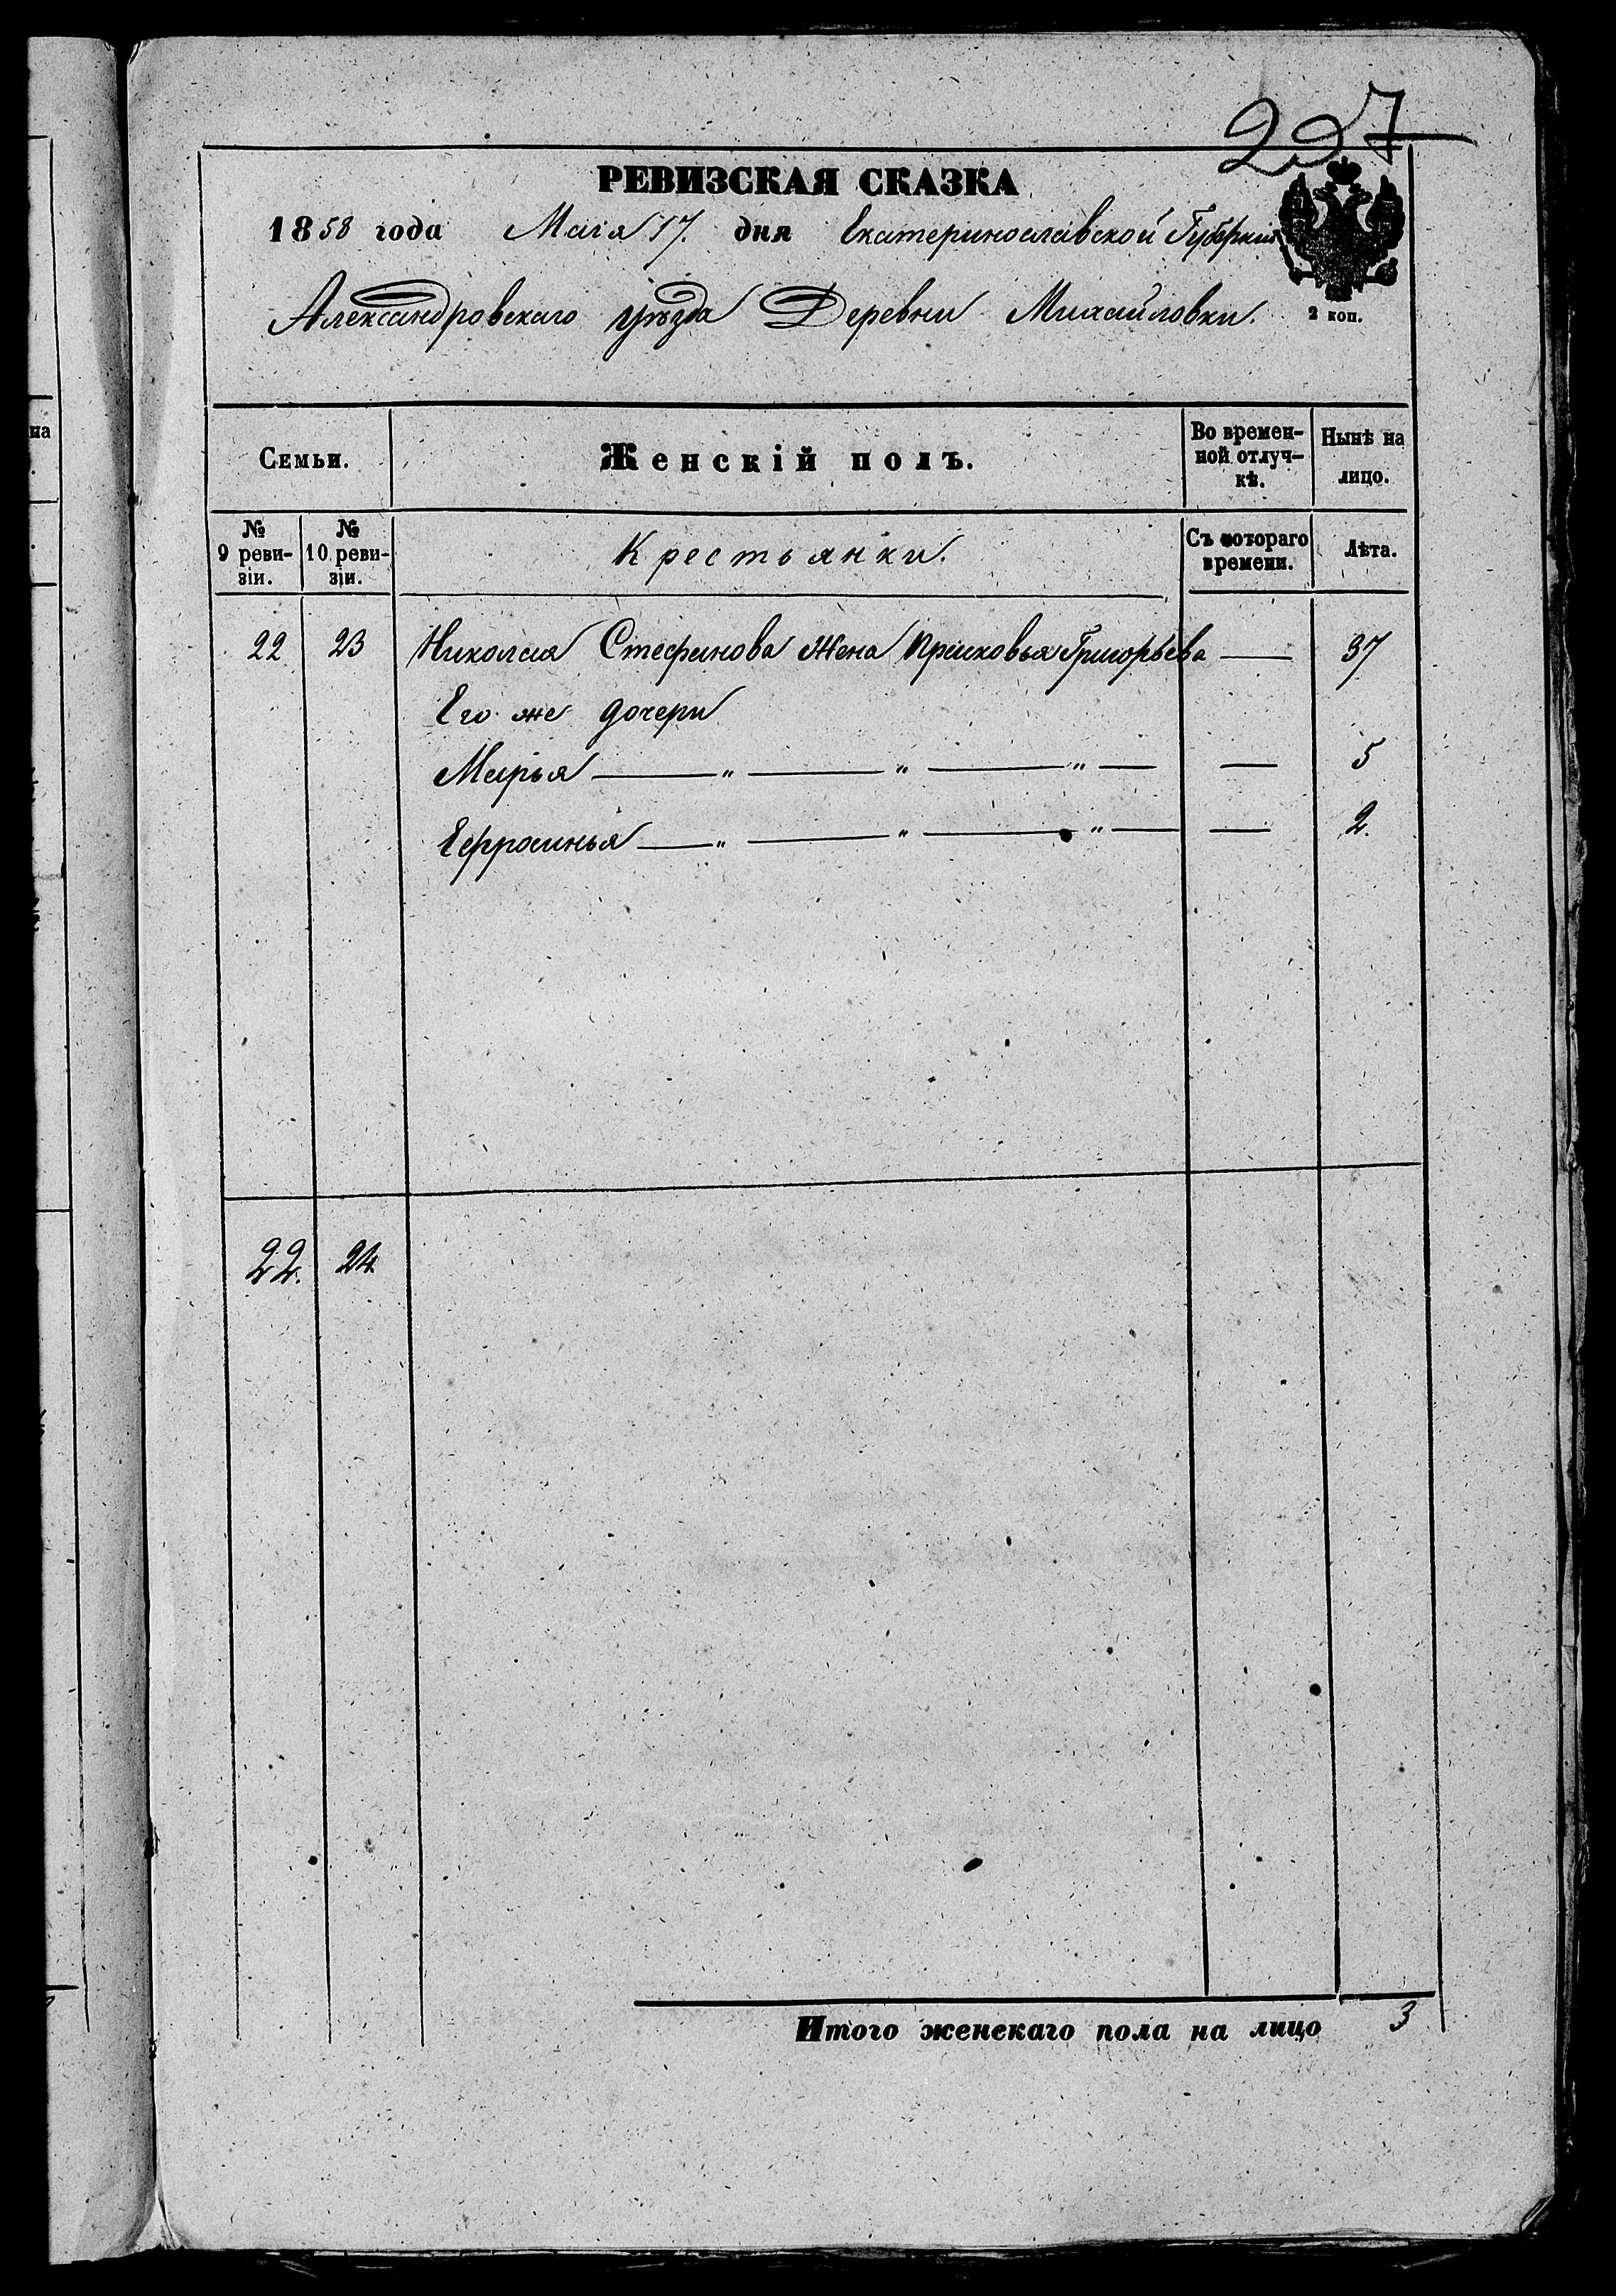 227
РЕВИЗСКАЯ СКАЗКА
1858 года Маія 17. дня Екатеринославской Губерніи
Александровскаго уѣзда Деревни Михайловки.
2 коп.
на
Семьи.
Женскій полъ.
Во времен-
ной отлуч-
кѣ.
Нынѣ на
лицо.
№
9 реви-
зіи.
№
10 реви-
зіи.
Крестьянки.
Съ котораго
времени.
Лѣта.
22 23 Николая Стефанова жена Прасковья Григорьева — 37
Его же дочери
Марья — „ — „ — „ — — 5
Ефросинья — „ — „ — „ — — 2.
22. 24.
Итого женскаго пола на лицо 3